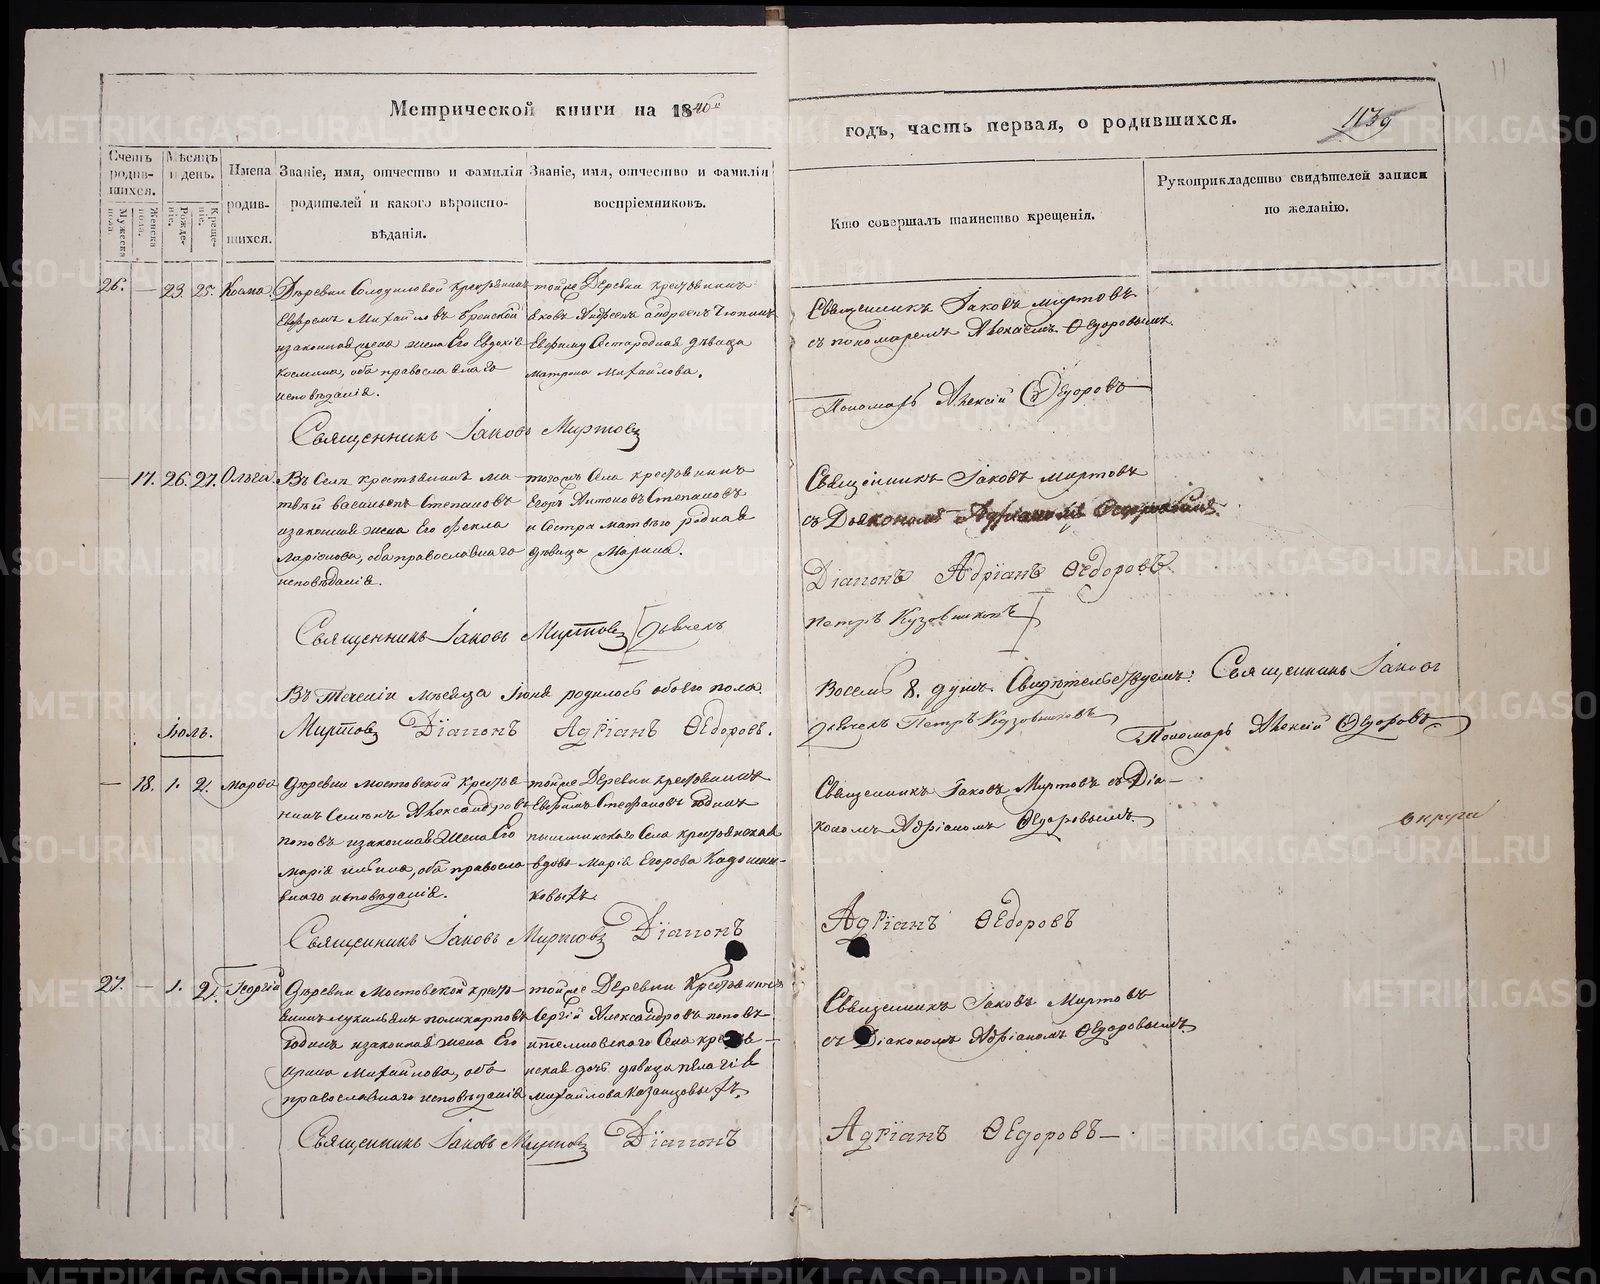 Метрической книги на 1840й
годъ, часть первая, о родившихся.
1139
11
Счетъ родив-шихся.
Мѣсяцъ и день.
Имена родив-шихся.
Званіе, имя, отчество и фамилія родителей и какого вѣроиспо-вѣданія.
Званіе, имя, отчество и фамилія воспріемниковъ.
Кто совершалъ таинство крещенія.
Рукоприкладство свидѣтелей записи по желанію.
Мужеска пола.
Женска пола.
Рожде-ніе.
Креще-ніе.
26. — 23. 25. Косма.
Деревни Солодиловой крестьянинъ
Ефремъ Михайловъ
изаконная жена Его Евдокія
Космина, оба православнаго
исповѣданія.
тойже Деревни крестьянинъ
дѣвица
Матрона Михайлова.
Священникъ Іаковъ Миртовъ
съ пономаремъ Алексѣемъ Ѳедоровымъ.
Пономарь Алексій Ѳедоровъ
Священникъ Іаковъ Миртовъ
— 17. 26. 27. Ольга
Въ Селѣ крестьянинъ Ма-
твѣй Васильевъ Степановъ
изаконная жена Его Ѳекла
Ларіонова, оба православнаго
исповѣданія.
тогожъ Села крестьянинъ
Егоръ Антоновъ Степановъ
и Сестра Матвѣю родная
дѣвица Марина.
Священникъ Іаковъ Миртовъ
съ Дьякономъ Адріаномъ
Діаконъ Адріанъ Ѳедоровъ
Петръ Кузовниковъ
Священникъ Іаковъ Миртовъ Дьячекъ
Въ Теченіи мѣсяца Іюня родилось обоего пола
Восемь 8. душъ. Свидѣтельствуемъ: Священникъ Іаковъ
Миртовъ Діаконъ Адріанъ Ѳедоровъ.
Дьячекъ Петръ Кузовниковъ Пономарь Алексій Ѳедоровъ
Іюль.
— 18. 1. 2. Марѳа
Деревни Мостовской крестья-
нинъ Семенъ Александровъ
Поповъ изаконная жена Его
Марія Ильина, оба правосла-
внаго исповѣданія.
тойже Деревни крестьянинъ
Ефимъ Стефановъ Юдинъ
пышминскаго Села крестьянская
вдова Марія Егорова
Священникъ Іаковъ Миртовъ съ Діа-
кономъ Адріаномъ Ѳедоровымъ.
Адріанъ Ѳедоровъ
Священникъ Іаковъ Миртовъ Діаконъ
27. — 1. 2. Георгій
Деревни Мостовской кресть-
янинъ поликарповъ
Юдинъ изаконная жена Его
Ирина Михайлова, оба
православнаго исповѣданія
тойже Деревни Крестьянинъ
Сергій Александровъ поповъ
Села кресть-
нская дочь дѣвица Пелагія
Михайлова Казанцовыхъ.
Священникъ Іаковъ Миртовъ
съ Діакономъ Адріаномъ Ѳедоровымъ
Адріанъ Ѳедоровъ—
Священникъ Іаковъ Миртовъ Діаконъ
METRIKI.GASO-URAL.RU